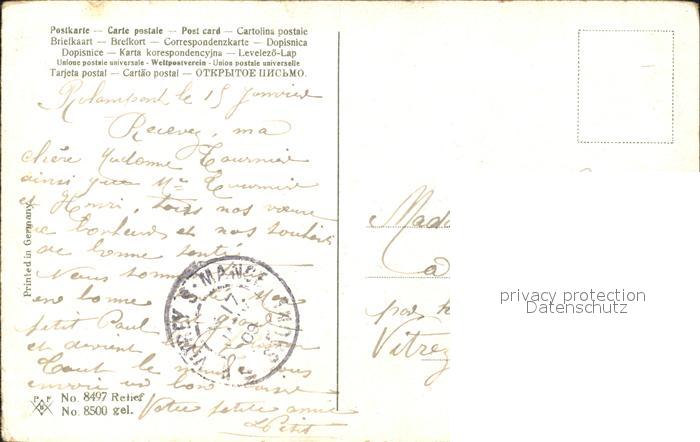 Postkarte — Carte postale — Post card — Cartolina postale
Briefkaart — Brefkort — Correspondenzkarte — Dopisnica
Dopisnice — Karta korespondencyjna — Levelező-Lap
Unione postale universale - Weltpostverein - Union postale universelle
Tarjeta postal — Cartão postal — ОТКРЫТОЕ ПИСЬМО.
Rolampont le 15 Janvier
Recevez, ma
chère Madame Tournier
ainsi que Mr Tournier
et Henri, tous nos vœux
de bonheur et nos souhaits
de bonne santé
Nous sommes
en bonne
petit Paul
et devient
Tout le
envoie un bon
Votre petite amie
Printed in Germany.
P F B
No. 8497 Relief
No. 8500 gel.
VITREY S. MANCE
17
09
Mada
à
par
Vitrey
privacy protection
Datenschutz